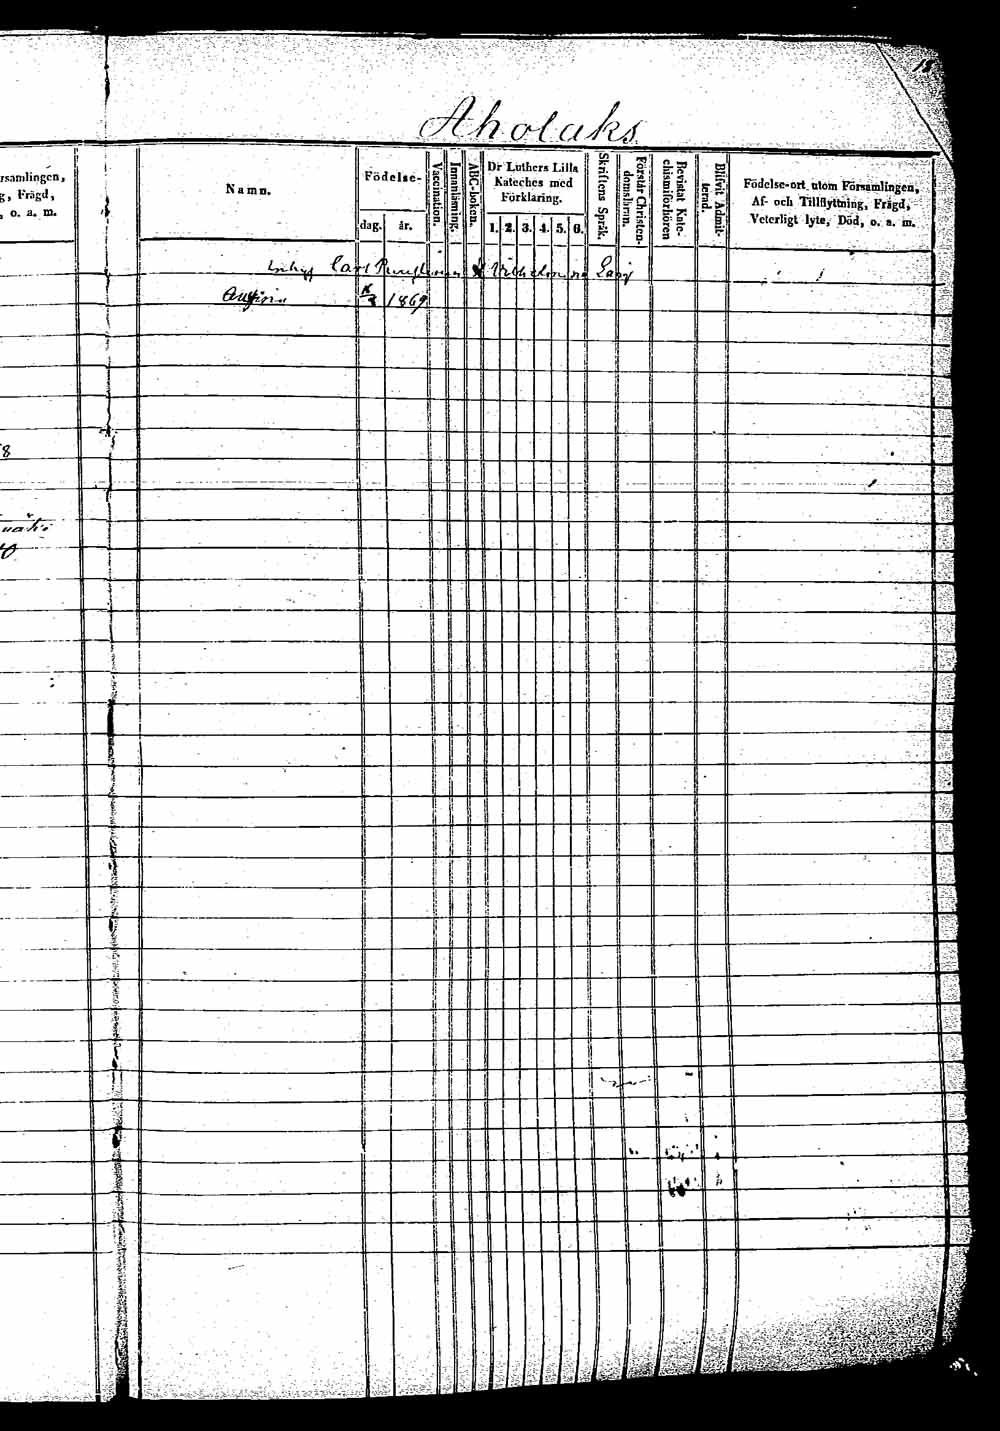 15
Aholaks
rsamlingen,
g, Frägd,
, o. a. m.
Namn.
Födelse-
dag. år.
Vaccination.
Innanläsning.
ABC-boken.
Dr Luthers Lilla
Kateches med
Förklaring.
1. 2. 3. 4. 5. 6.
Skriftens Språk.
Förstår Christen-
domsläran.
Bevistat Kate-
chismiförhören
Blifvit Admit-
terad.
Födelse-ort utom Församlingen,
Af- och Tillflyttning, Frägd,
Veterligt lyte, Död, o. a. m.
Carl
1869
8